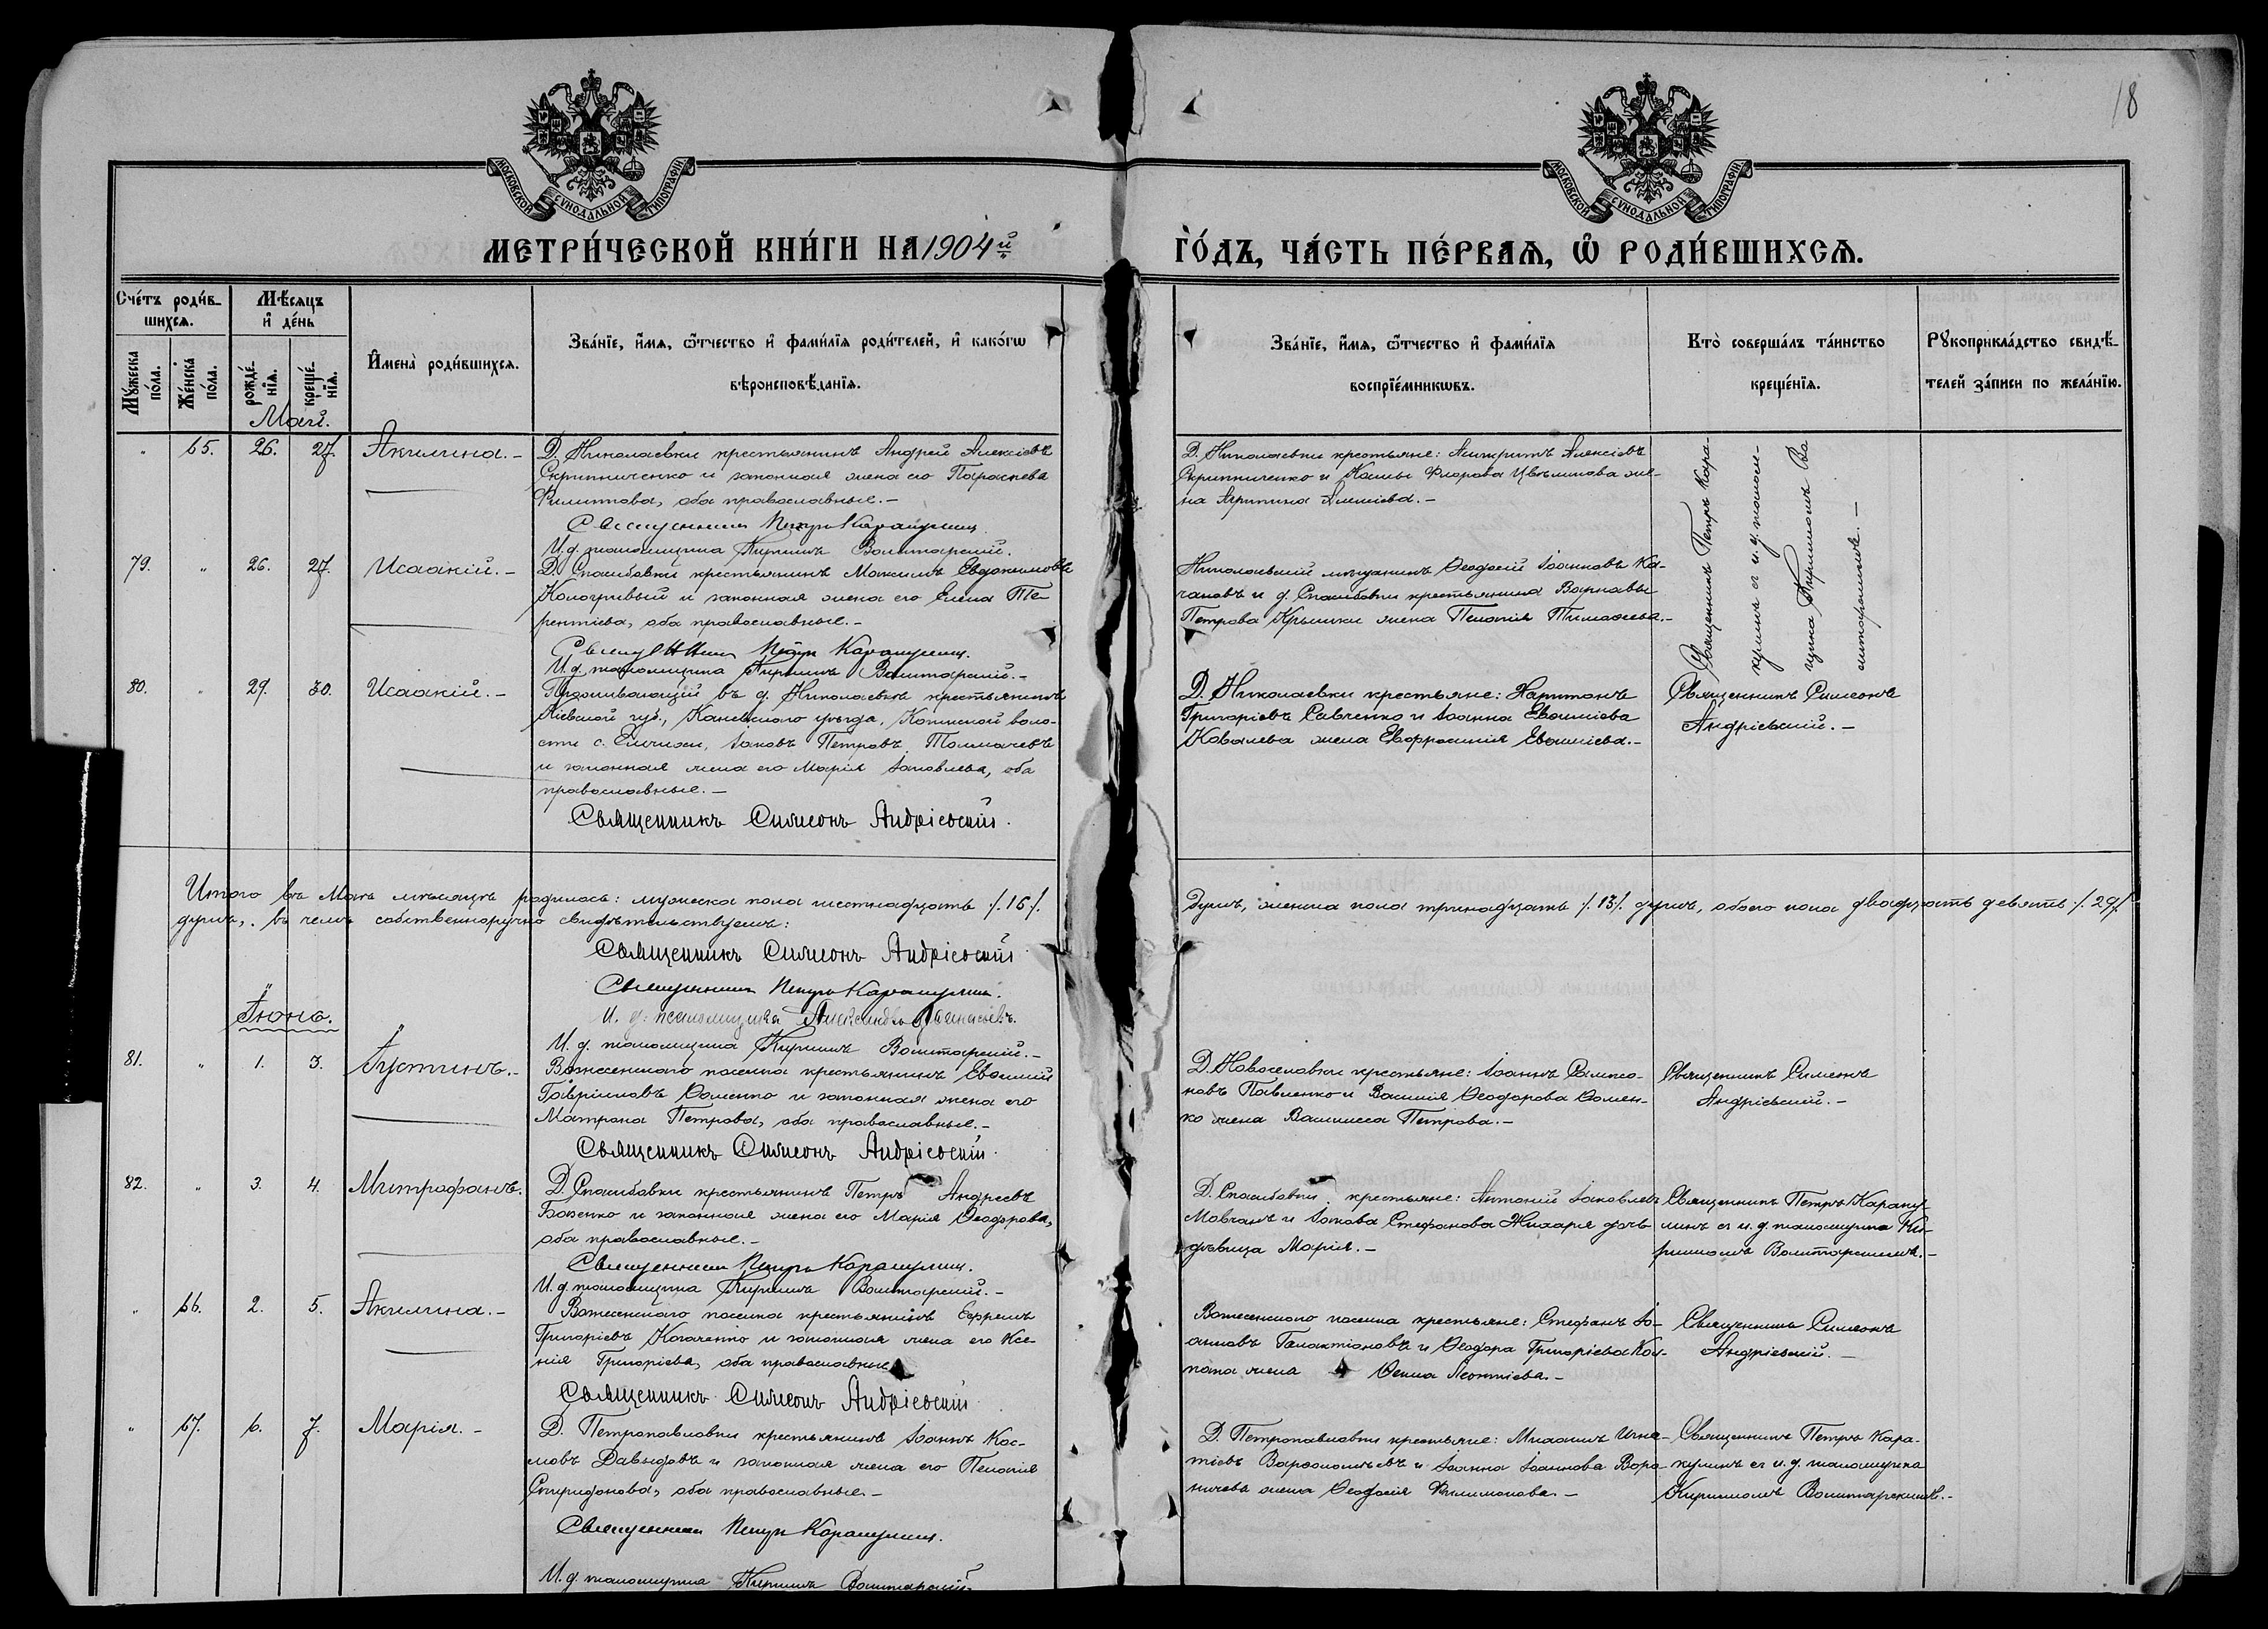 18
МОСКОВСКОЙ СѴНОДАЛЬНОЙ ТИПОГРАФІИ
МОСКОВСКОЙ СѴНОДАЛЬНОЙ ТИПОГРАФІИ
МЕТРИ́ЧЕСКОЙ КНИ́ГИ НА 1904й
ГО́ДЪ, ЧА́СТЬ ПЕ́РВАѦ, Ѡ҆ РОДИ́ВШИХСѦ.
Сче́тъ роди́в-
шихсѧ.
Мꙋ́жеска по́ла.
Же́нска по́ла.
Мѣ́сѧцъ
и҆ де́нь
рожде́-
нїѧ.
креще́-
нїѧ.
И҆мена̀ роди́вшихсѧ.
Зва́нїе, и҆́мѧ, ѻ҆́тчество и҆ фами́лїѧ роди́телей, и҆ како́гѡ
вѣроисповѣ́данїѧ.
Зва́нїе, и҆́мѧ, ѻ҆́тчество и҆ фами́лїѧ
воспрїе́мникѡвъ.
Кто̀ соверша́лъ та́инство
креще́нїѧ.
Рꙋкоприкла́дство свидѣ́-
телей за́писи по жела́нїю.
Май.
" 65. 26. 27. Акилина.-
Д. Николаевки крестьянинъ Андрей Алексіевъ
Скрипниченко и законная жена его Параскева
Филиппова, оба православные.-
Священникъ Петръ Каракулинъ.
И. д. псаломщика Кириллъ Волитарскій.
Д. Николаевки крестьяне: Алексіевъ
Скрипниченко и Флорова же-
на Агрипина Алексіева.-
Священникъ Петръ Кара-
кулинъ съ и. д. псалом-
щика Кирилломъ Во
литарскимъ.-
79. " 26. 27. Исаакій.-
Д. Спасибовки крестьянинъ Максимъ Евдокимовъ
Кологривый и законная жена его Елена Те-
рентіева, оба православные.-
Священникъ Петръ Каракулинъ.
И. д. псаломщика Кириллъ Волитарскій.-
Николаевскій мѣщанинъ Ѳеодосій Іоанновъ Ка-
чановъ и д. Спасибовки крестьянина Варнавы
Петрова Крышки жена Пелагія Тимоѳеева.-
80. " 29. 30. Исаакій.-
Проживающій въ д. Николаевкѣ крестьянинъ
Кіевской губ., Каневскаго уѣзда, воло-
сти с. Іаковъ Петровъ Толмачевъ
и законная жена его Марія Іаковлева, оба
православные.-
Священникъ Симеонъ Андріевскій.
Д. Николаевки крестьяне: Харитонъ
Григоріевъ Савченко и Іоанна Евѳиміева
Ковалева жена Евфросинія Евѳиміева.-
Священникъ Симеонъ
Андріевскій.-
Итого въ Маѣ мѣсяцѣ родилось: мужеска пола шестнадцать /.16/.
душъ, женска пола тринадцать /.13/. душъ, обоего пола двадцать девять /.29/.
душъ, въ чемъ собственноручно свидѣтельствуемъ:
Священникъ Симеонъ Андріевскій
Священникъ Петръ Каракулинъ.
И. д. псаломщика Александръ Аѳанасьевъ.
И. д. псаломщика Кириллъ Волитарскій.-
Іюнь.
81. " 1. 3. Іустинъ.-
Вознесенскаго поселка крестьянинъ Евѳимій
Гавріиловъ Ѳоменко и законная жена его
Матрона Петрова, оба православные.-
Священникъ Симеонъ Андріевскій.
Д. Новоселовки крестьяне: Іоаннъ Сампсо-
новъ Павленко и Василія Ѳеодорова Ѳомен-
ко жена Василисса Петрова.-
Священникъ Симеонъ
Андріевскій.-
82. " 3. 4. Митрофанъ.
Д. Спасибовки крестьянинъ Петръ Андреевъ
Боженко и законная жена его Марія Ѳеодорова,
оба православные.-
Священникъ Петръ Каракулинъ.
И. д. псаломщика Кириллъ Волитарскій.-
Д. Спасибовки крестьяне: Антоній Іаковлевъ
Мовчанъ и Іакова Стефанова Жихаря дочь
дѣвица Марія.-
Священникъ Петръ Караку-
линъ съ и. д. псаломщика Ки-
рилломъ Волитарскимъ.-
" 66. 2. 5. Акилина.-
Вознесенскаго поселка крестьянинъ Ефремъ
Григоріевъ Косаченко и законная жена его Ксе-
нія Григоріева, оба православные
Священникъ Симеонъ Андріевскій
Вознесенскаго поселка крестьяне: Стефанъ Іо-
анновъ Галактіоновъ и Ѳеодора Григоріева Кол-
пака жена Ѳекла Леонтіева.-
Священникъ Симеонъ
Андріевскій.-
" 67. 6. 7. Марія.-
Д. Петропавловки крестьянинъ Іоаннъ Кос-
мовъ Давыдовъ и законная жена его Пелагія
Спиридонова, оба православные.-
Священникъ Петръ Каракулинъ.
И. д. псаломщика Кириллъ Волитарскій.
Д. Петропавловки крестьяне: Михаилъ Игна-
тіевъ Варѳоломѣевъ и Іоанна Іоаннова Воро-
ничева жена Ѳеодосія Филимонова.-
Священникъ Петръ Кара-
кулинъ съ и. д. псаломщика
Кирилломъ Волитарскимъ.-